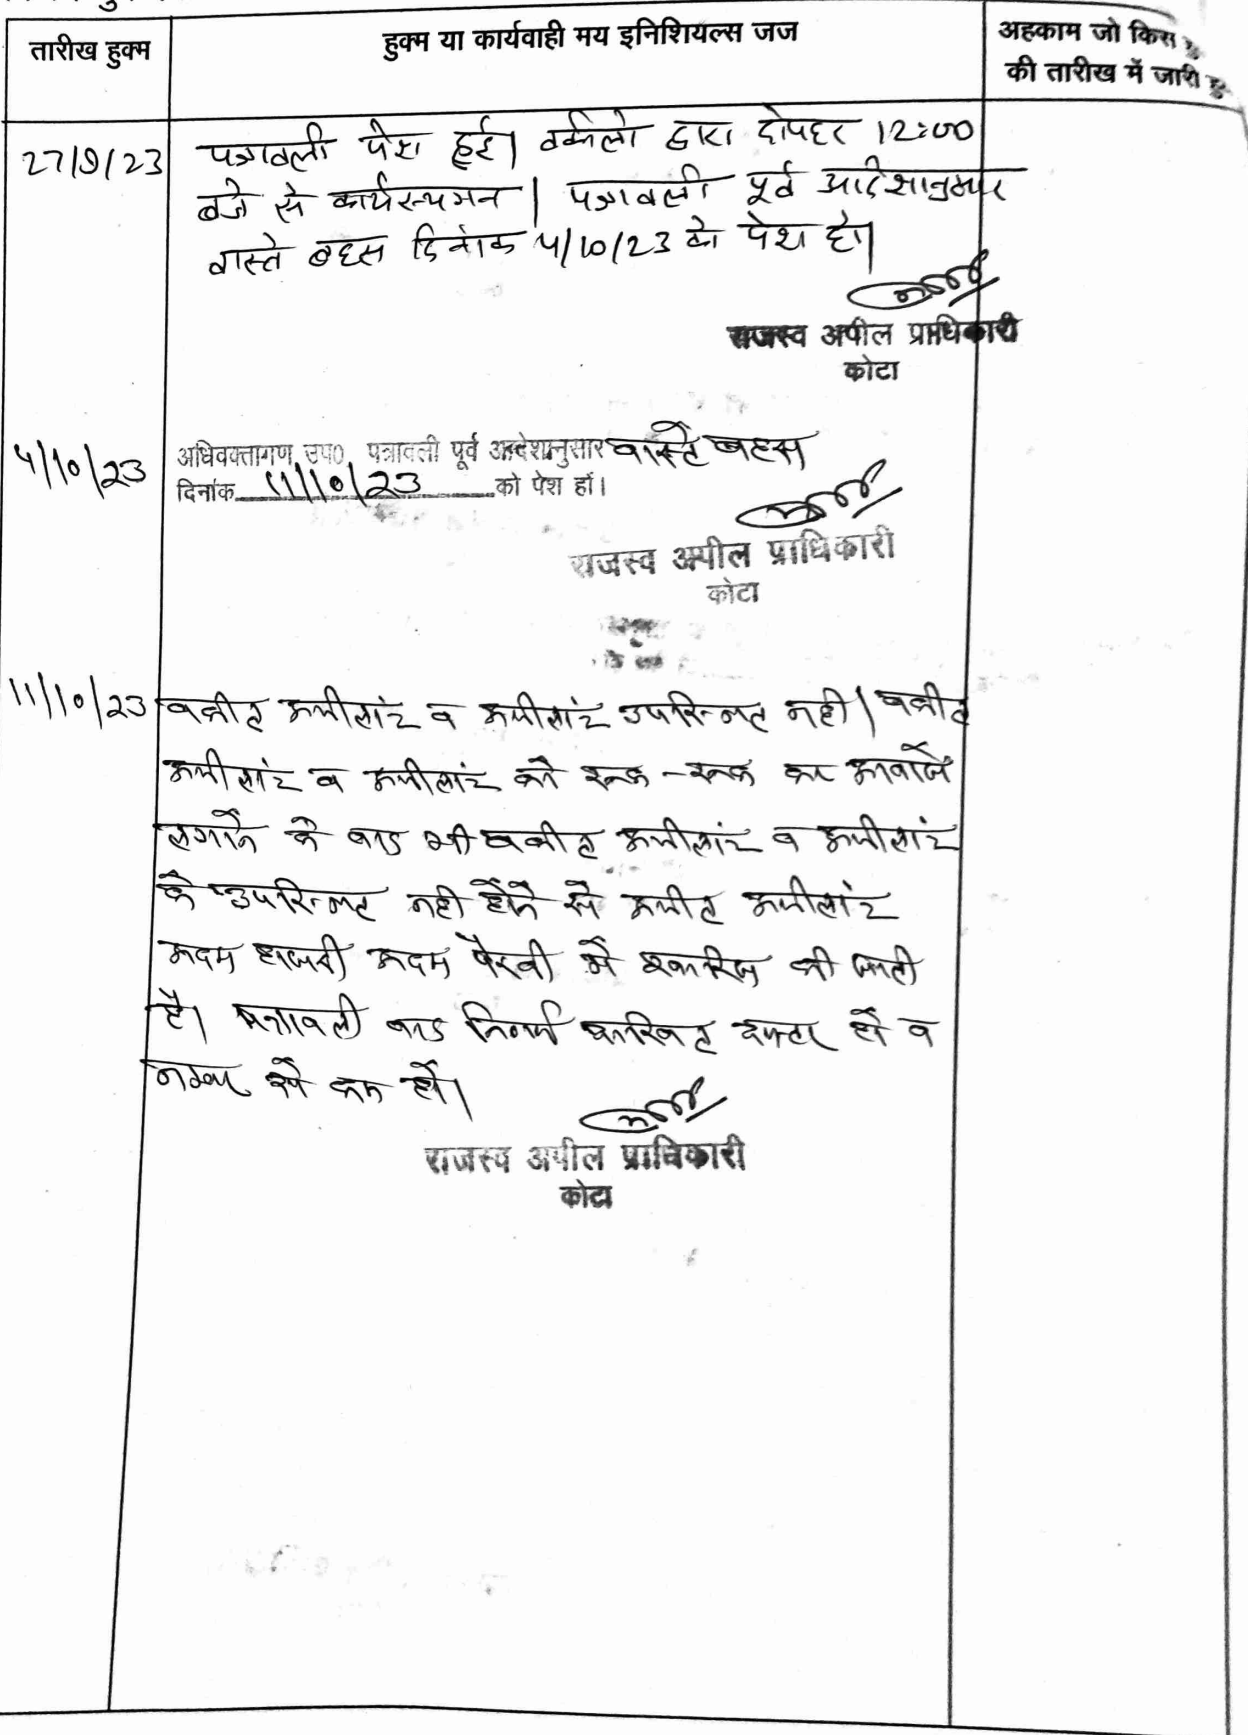 तारीख हुक्म
हुक्म या कार्यवाही मय इनिशियल्स जज
अहकाम जो किस
की तारीख में जारी हु
27/9/23
पत्रावली पेश हुई। वकीलो द्वारा दोपहर 12:00
बजे से कार्यस्थगन। पत्रावली पूर्व आदेशानुसार
वास्ते बहस दिनांक 4/10/23 को पेश हो।
राजस्व अपील प्राधिकारी
कोटा
4/10/23
अधिवक्तागण उप0 पत्रावली पूर्व आदेशानुसार वास्ते बहस
दिनांक 11/10/23 को पेश हों।
राजस्व अपील प्राधिकारी
कोटा
11/10/23
वकील अपीलांट व अपीलांट उपस्थित नही। वकील
अपीलांट व अपीलांट को रूक-रूक कर आवाजें
लगाने के बाद भी वकील अपीलांट व अपीलांट
के उपस्थित नही होने से अपील अपीलांट
अदम हाजरी अदम पैरवी में खारिज की जाती
है। पत्रावली बाद निर्णय दाखिल दफ्तर हो व
नम्बर से कम हो।
राजस्व अपील प्राधिकारी
कोटा